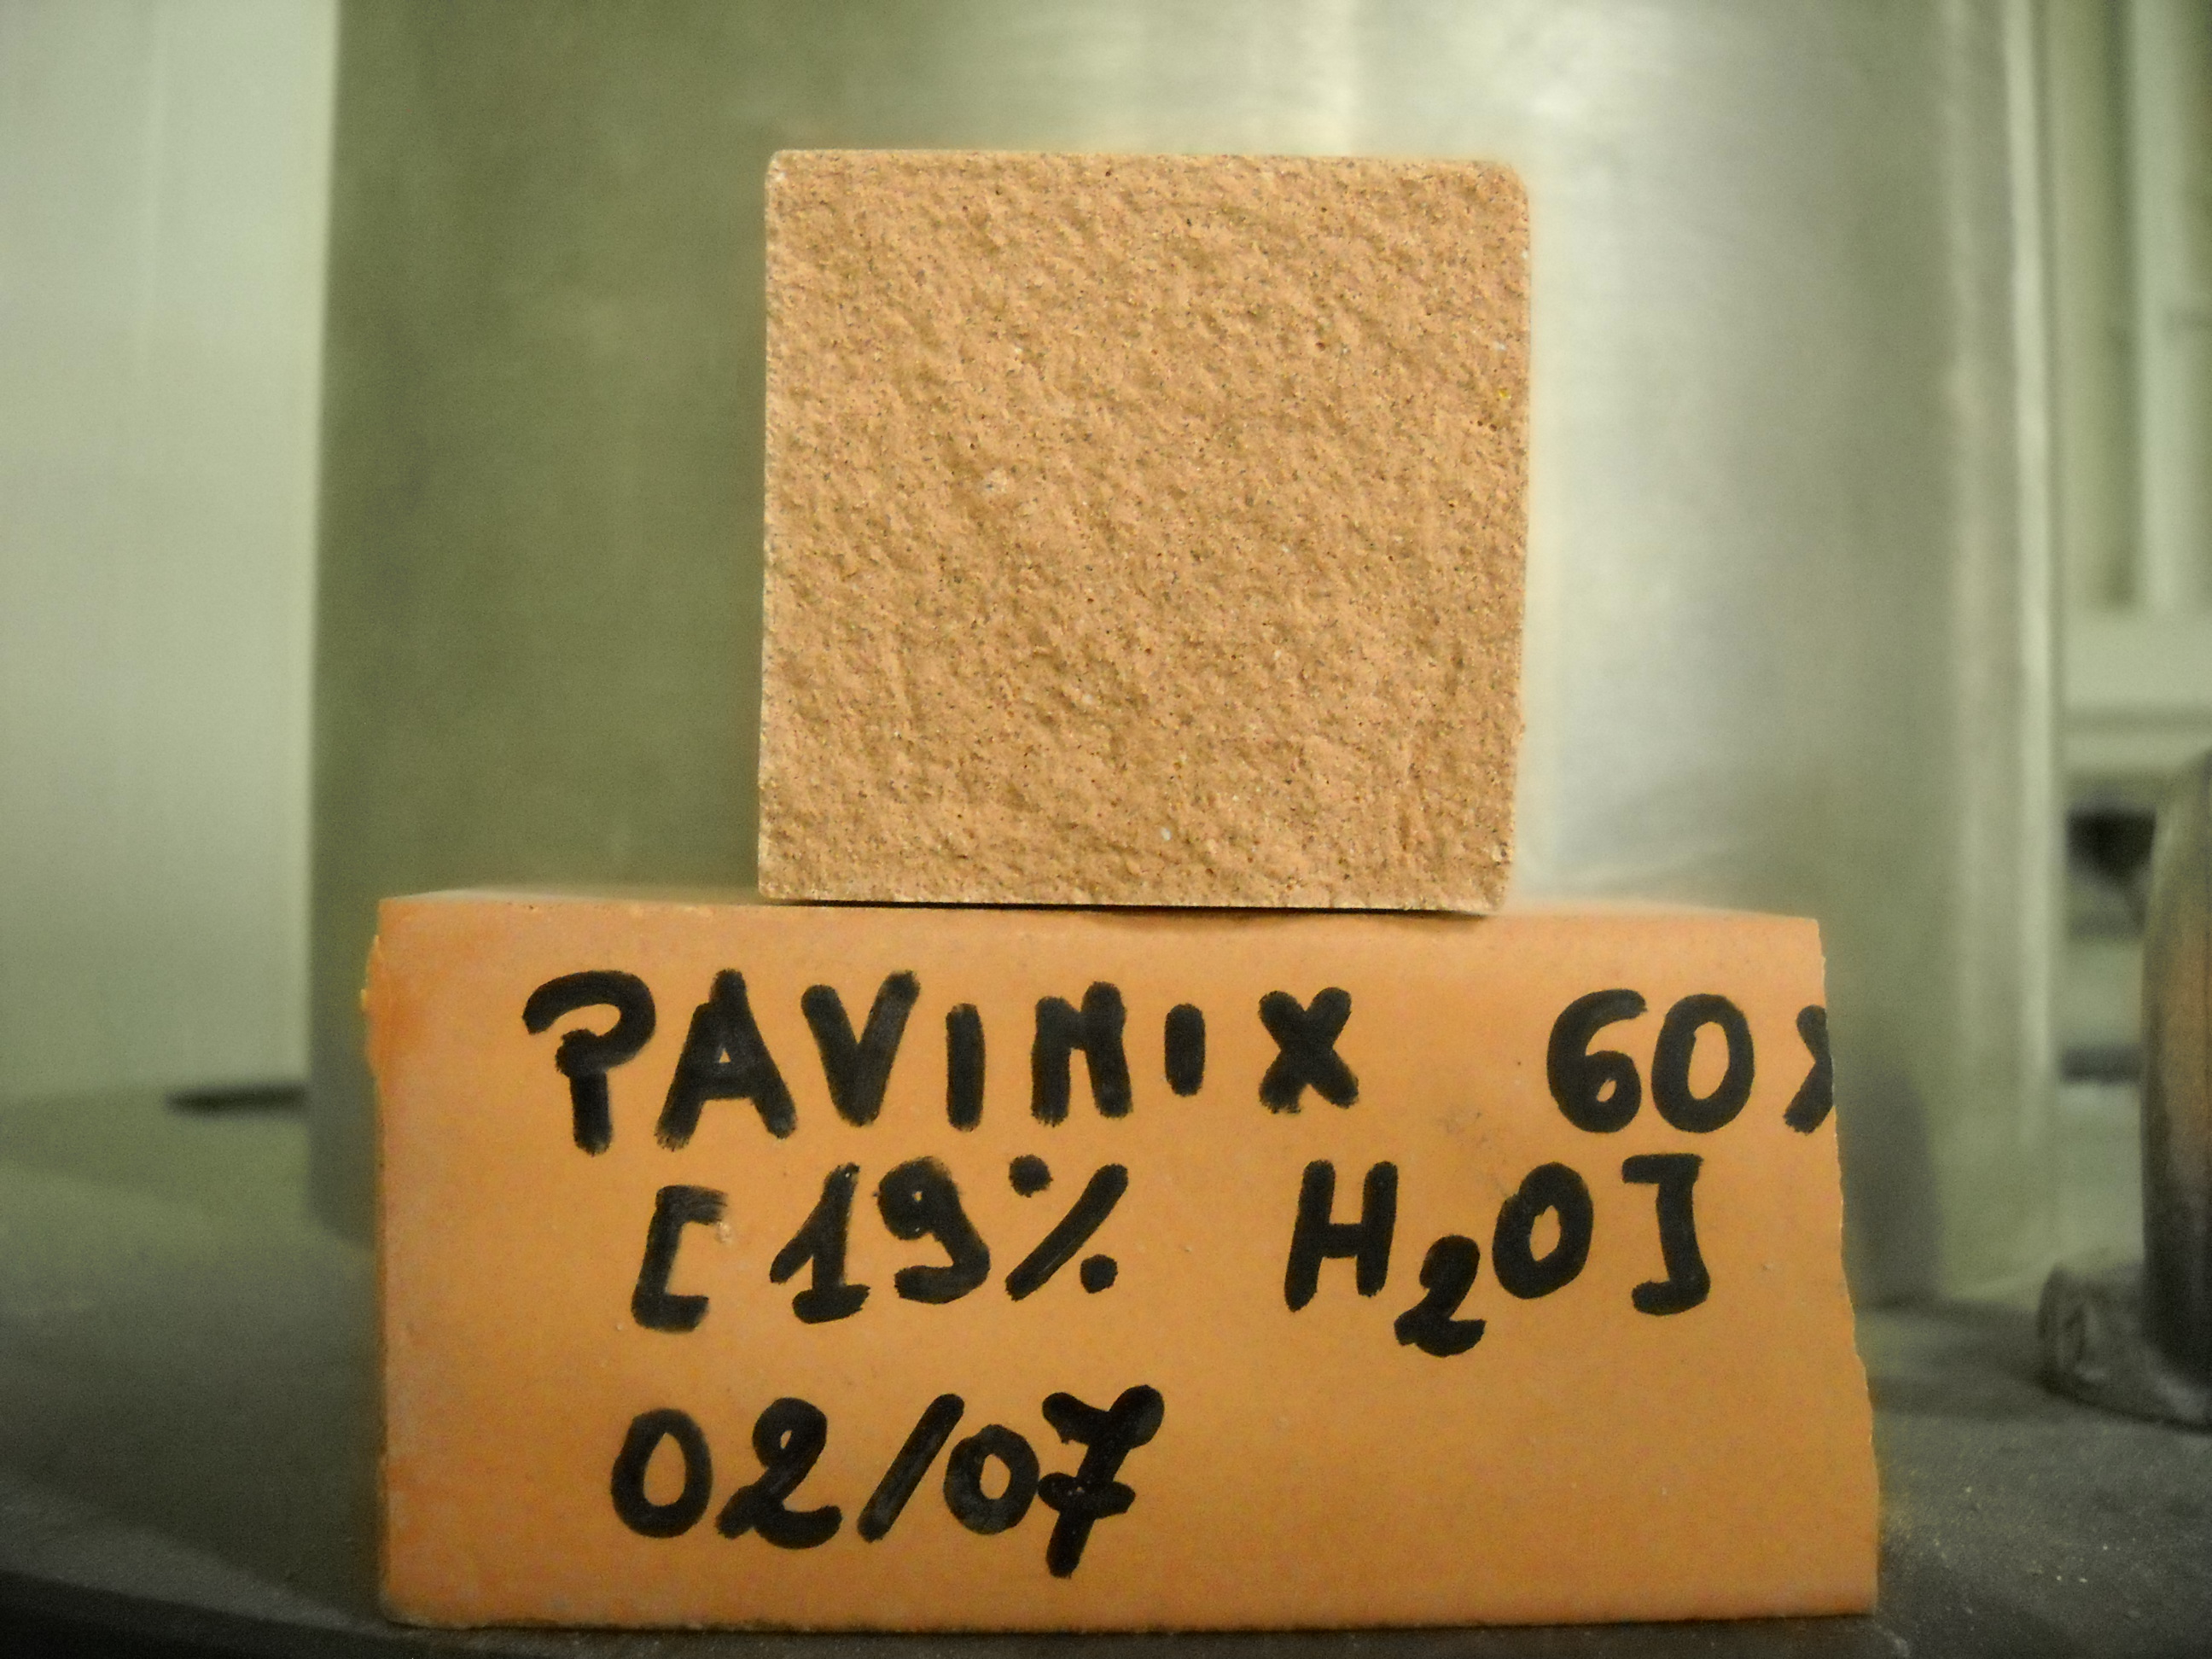 PAVIMIX 60X
[19% H₂O]
02/07